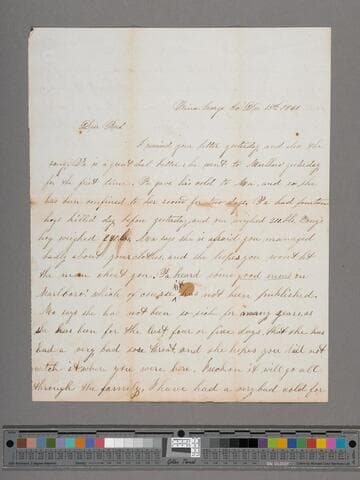 Prince George Co. Dec 15th 1861
Dear Bird
I received your letter yesterday and also the
songs. Pa is a great deal better; he went to Marlboro yesterday
for the first time. Pa gave his cold to Ma, and so she
has been confined to her room for two days. Pa had fourteen
hogs killed day before yesterday, and one weighed
hog weighed Ma says she is afraid you managed
badly about your clothes, and she hopes you
the man cheat you. Pa heard some good news in
Marlboro' which of course has not been published.
Ma says she has not been so sick for many years, as
she has been for the last four or five days. that she has
had a very bad sore throat, and she hopes you did not
catch it when you were here. I reckon it will go all
through the family. I have had a very bad cold for